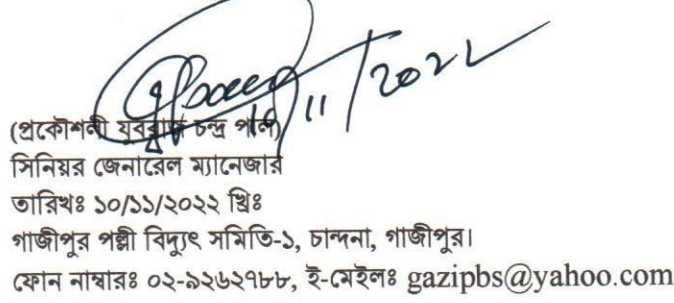 10/11/2022
(প্রকৌশলী যুবরাজ চন্দ্র পাল)
সিনিয়র জেনারেল ম্যানেজার
তারিখঃ ১০/১১/২০২২ খ্রিঃ
গাজীপুর পল্লী বিদ্যুৎ সমিতি-১, চান্দনা, গাজীপুর।
ফোন নাম্বারঃ ০২-৯২৬২৭৮৮, ই-মেইলঃ gazipbs@yahoo.com